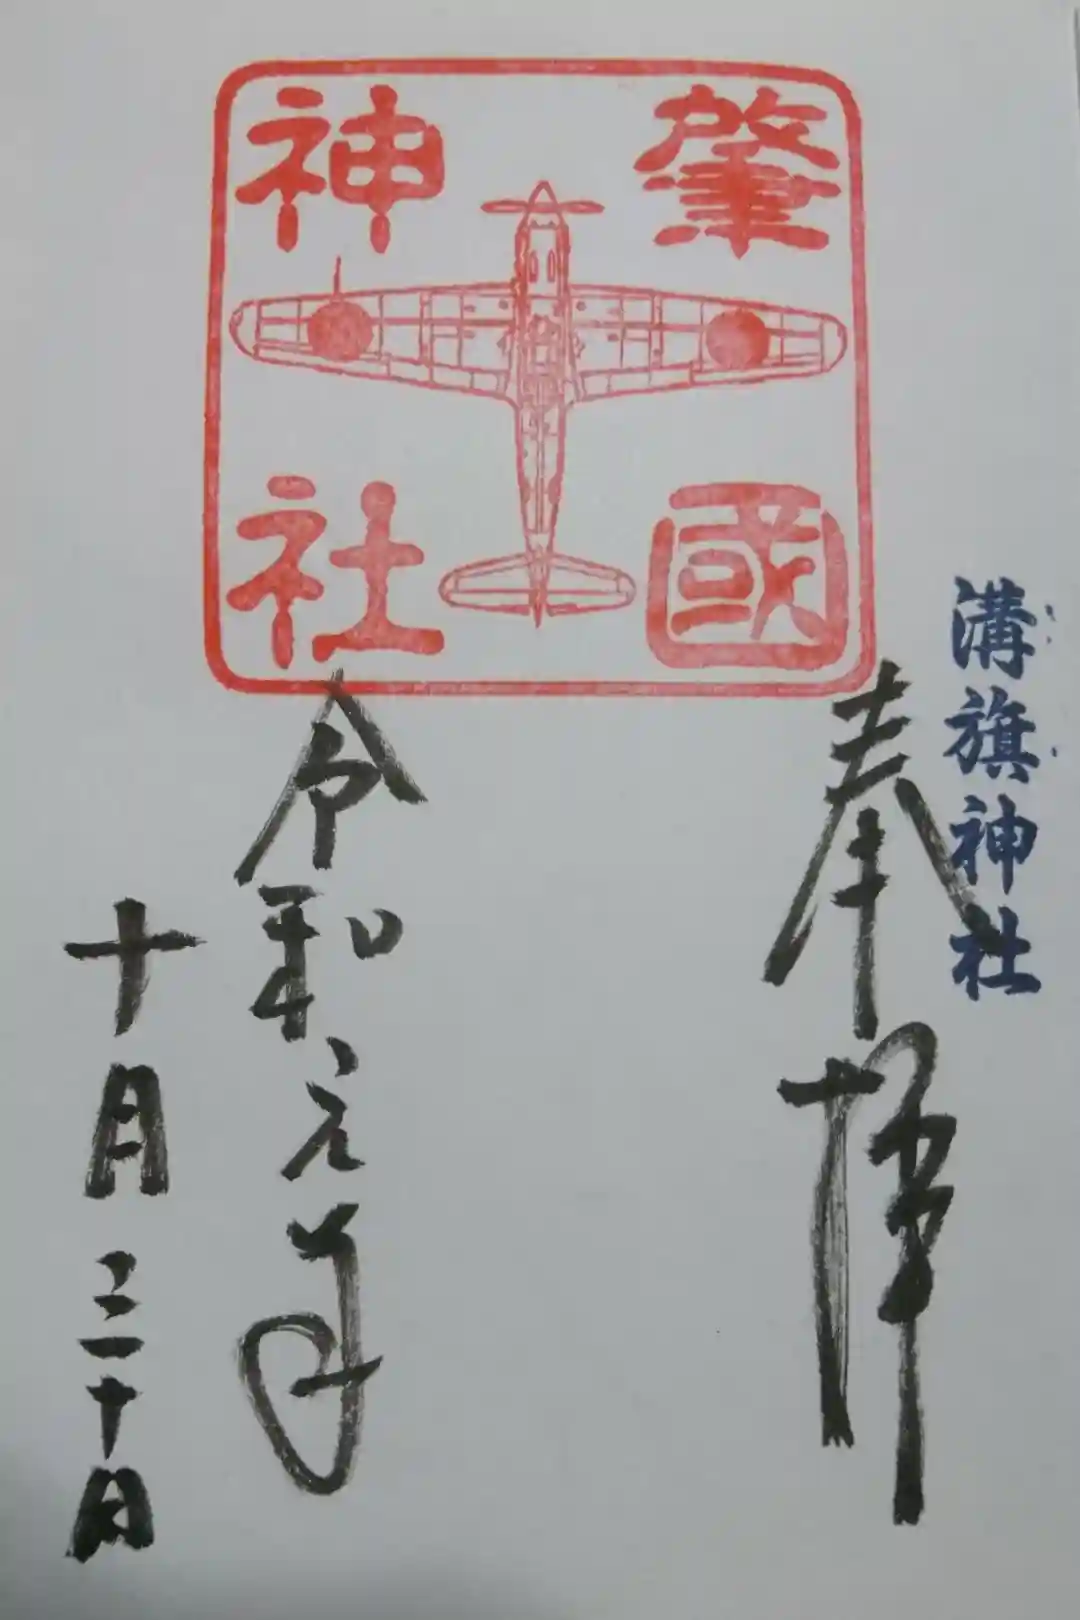 溝旗神社
奉拝
肇國
神社
令和元年
十月三十日